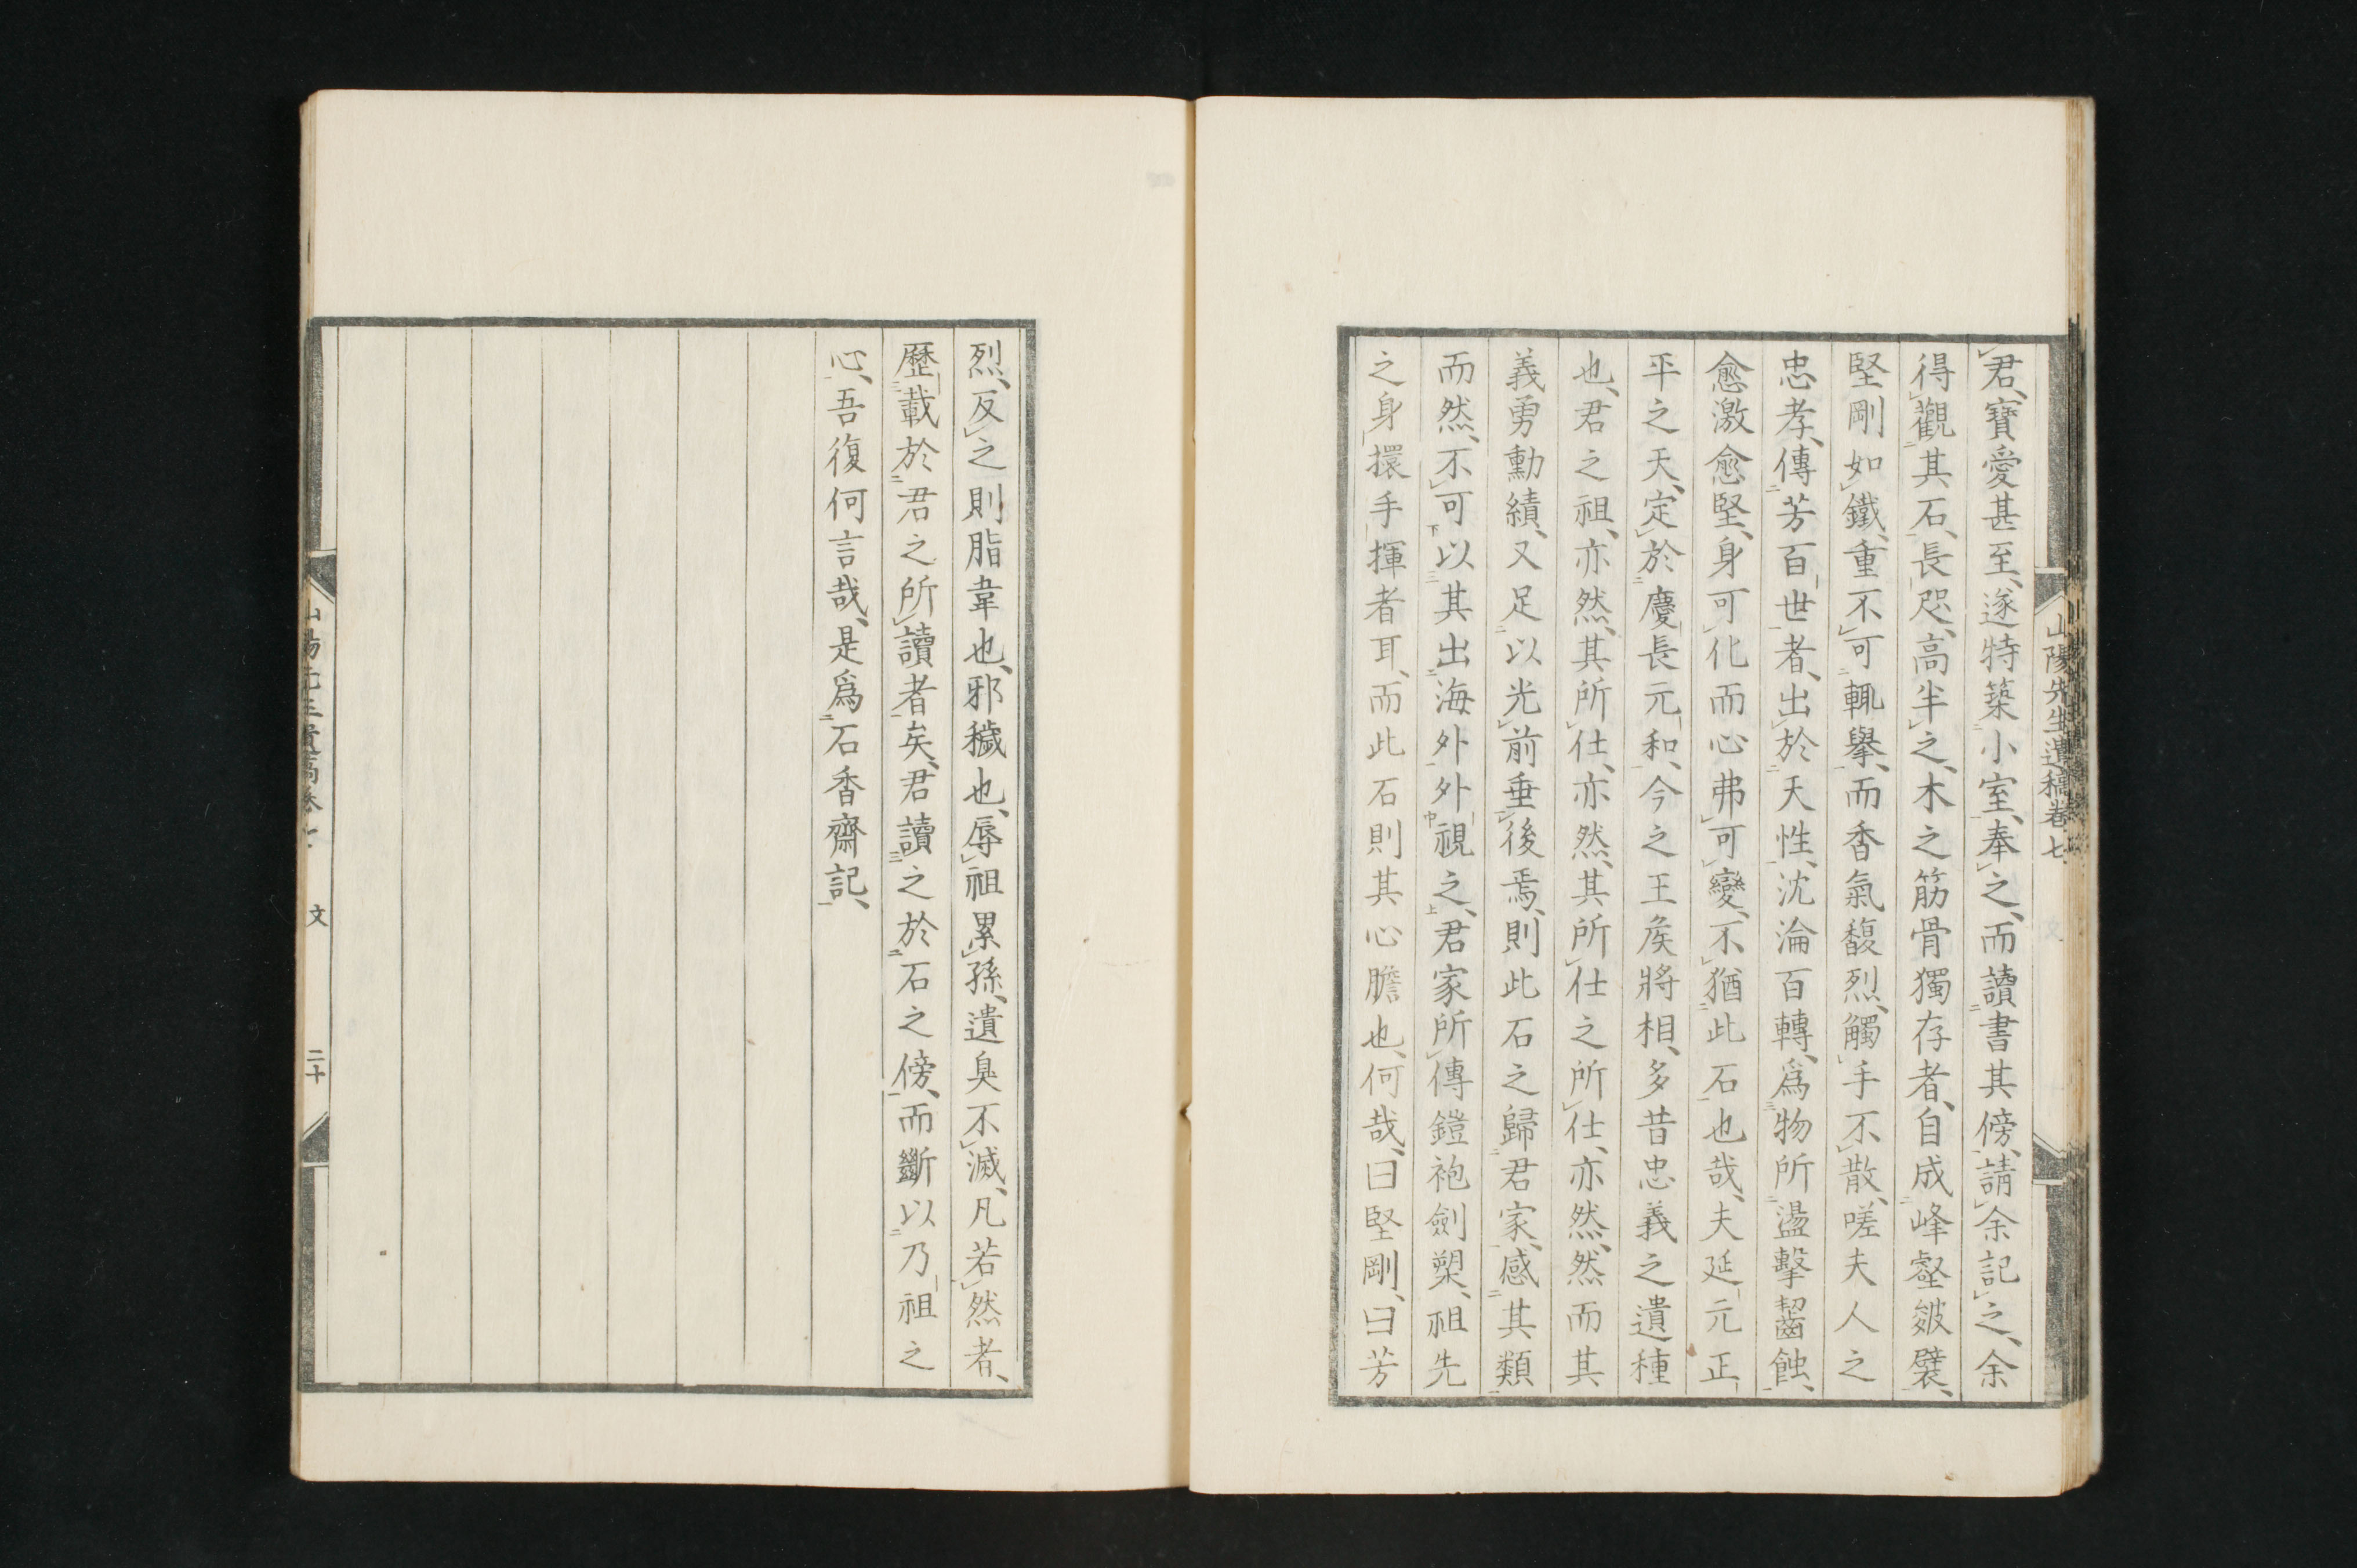 山陽先生遺稿卷七
君、寶愛甚至、遂特築小室、奉之、而讀書其傍、請余記之、余
得觀其石、長咫、高半之、木之筋骨獨存者、自成峰壑皴襞、
堅剛如鐵、重不可輒擧、而香氣馥烈、觸手不散、嗟夫人之
忠孝、傳芳百世者、出於天性、沈淪百轉、爲物所盪擊齧蝕、
愈激愈堅、身可化而心弗可變、不猶此石也哉、夫延元正
平之天、定於慶長元和、今之王侯將相、多昔忠義之遺種
也、君之祖、亦然、其所仕、亦然、其所仕之所仕、亦然、然而其
義勇勳績、又足以光前垂後焉、則此石之歸君家、感其類
而然、不可以其出海外外視之、君家所傳鎧袍劍槊、祖先
之身擐手揮者耳、而此石則其心膽也、何哉、曰堅剛、曰芳
烈、反之則脂韋也、邪穢也、辱祖累孫、遺臭不滅、凡若然者、
歷載於君之所讀者矣、君讀之於石之傍、而斷以乃祖之
心、吾復何言哉、是爲石香齋記、
文
二十